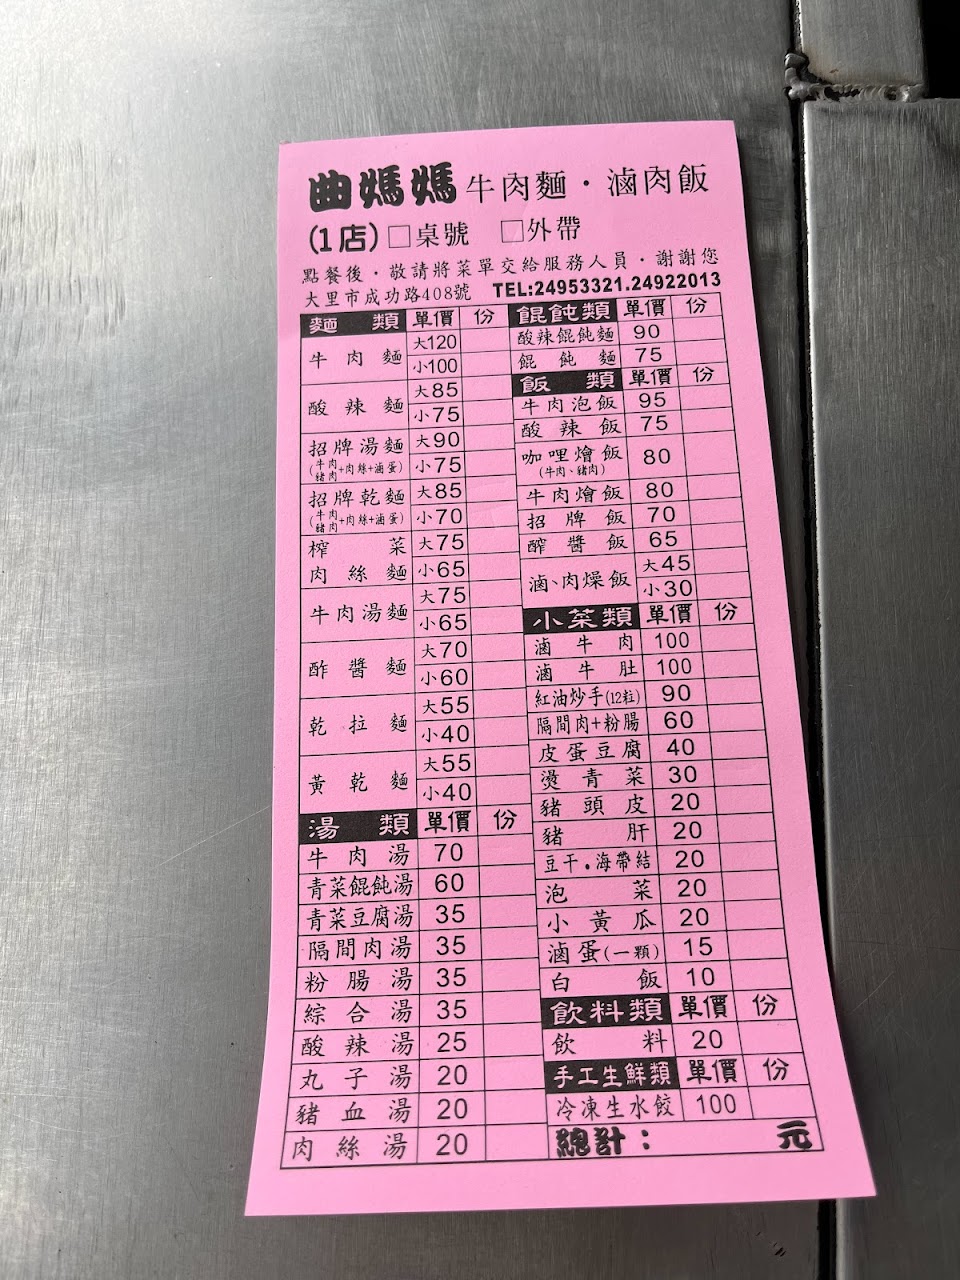 曲媽媽牛肉麵．滷肉飯
(1店)□桌號 □外帶
點餐後．敬請將菜單交給服務人員．謝謝您
大里市成功路408號 TEL:24953321.24922013
麵類 單價 份
牛肉麵 大120
小100
酸辣麵 大85
小75
招牌湯麵 大90
(牛肉 豬肉+肉絲+滷蛋) 小75
招牌乾麵 大85
(牛肉 豬肉+肉絲+滷蛋) 小70
榨菜 大75
肉絲麵 小65
牛肉湯麵 大75
小65
酢醬麵 大70
小60
乾拉麵 大55
小40
黃乾麵 大55
小40
湯類 單價 份
牛肉湯 70
青菜餛飩湯 60
青菜豆腐湯 35
隔間肉湯 35
粉腸湯 35
綜合湯 35
酸辣湯 25
丸子湯 20
豬血湯 20
肉絲湯 20
餛飩類 單價 份
酸辣餛飩麵 90
餛飩麵 75
飯類 單價 份
牛肉泡飯 95
酸辣飯 75
咖哩燴飯 80
(牛肉、豬肉)
牛肉燴飯 80
招牌飯 70
酢醬飯 65
滷、肉燥飯 大45
小30
小菜類 單價 份
滷牛肉 100
滷牛肚 100
紅油炒手(12粒) 90
隔間肉+粉腸 60
皮蛋豆腐 40
燙青菜 30
豬頭皮 20
豬肝 20
豆干．海帶結 20
泡菜 20
小黃瓜 20
滷蛋(一顆) 15
白飯 10
飲料類 單價 份
飲料 20
手工生鮮類 單價 份
冷凍生水餃 100
總計： 元